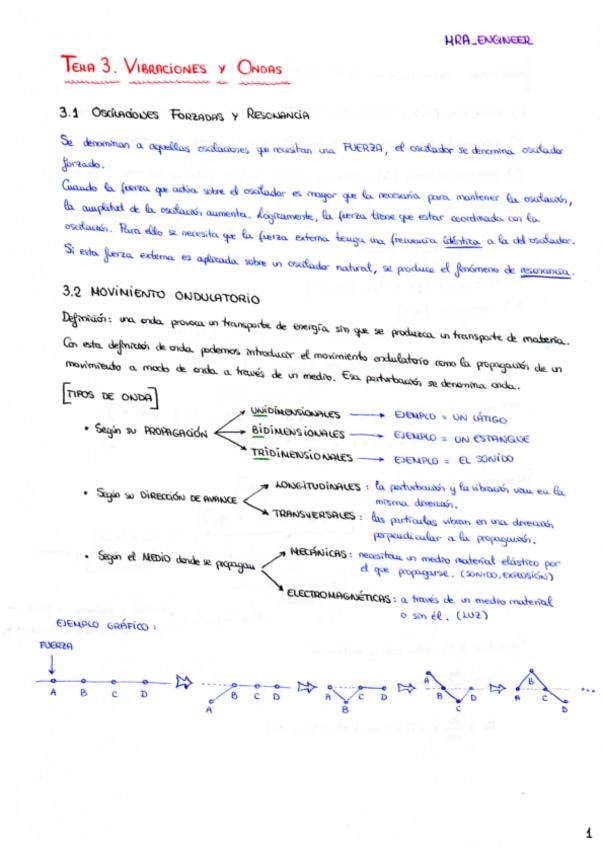 MRA_ENGINEER
TEMA 3. VIBRACIONES Y ONDAS
3.1 OSCILACIONES FORZADAS Y RESONANCIA
Se denominan a aquellas oscilaciones que necesitan una FUERZA, el oscilador se denomina oscilador
forzado.
Cuando la fuerza que actúa sobre el oscilador es mayor que la necesaria para mantener la oscilación,
la amplitud de la oscilación aumenta. Lógicamente, la fuerza tiene que estar coordinada con la
oscilación. Para ello se necesita que la fuerza externa tenga una frecuencia idéntica a la del oscilador.
Si esta fuerza externa es aplicada sobre un oscilador natural, se produce el fenómeno de resonancia.
3.2 MOVIMIENTO ONDULATORIO
Definición: una onda provoca un transporte de energía sin que se produzca un transporte de materia.
Con esta definición de onda podemos introducir el movimiento ondulatorio como la propagación de un
movimiento a modo de onda a través de un medio. Esa perturbación se denomina onda.
[TIPOS DE ONDA]
UNIDIMENSIONALES → EJEMPLO = UN LÁTIGO
• Según su PROPAGACIÓN BIDIMENSIONALES → EJEMPLO = UN ESTANQUE
TRIDIMENSIONALES → EJEMPLO = EL SONIDO
LONGITUDINALES: la perturbación y la vibración van en la
misma dirección.
• Según su DIRECCIÓN DE AVANCE
TRANSVERSALES: las partículas vibran en una dirección
perpendicular a la propagación.
MECÁNICAS: necesitan un medio material elástico por
el que propagarse. (SONIDO, EXPLOSIÓN)
• Según el MEDIO donde se propagan
ELECTROMAGNÉTICAS: a través de un medio material
o sin él. (LUZ)
EJEMPLO GRÁFICO:
FUERZA
A B C D
A B C D
A B C D
A B C D
A B C D
...
1